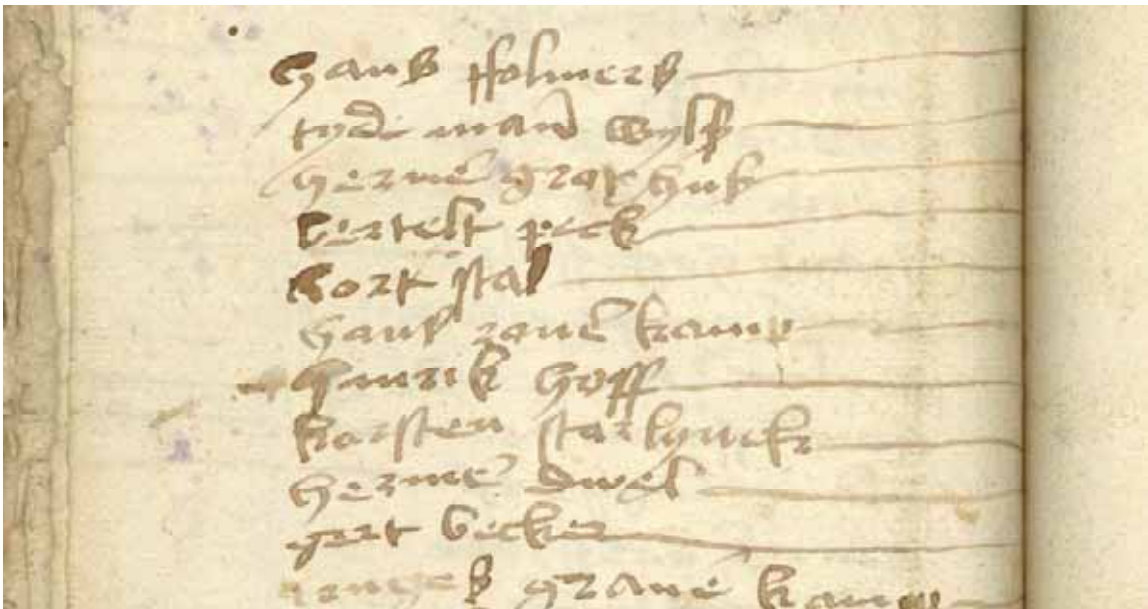 hans ffolmers
tyde man wylf
hermē grat hus
bertelt peck
kort stal
hans kamp
hinrik hoff
karsten starlynck
hermē dwel
gert becker
granē kamp